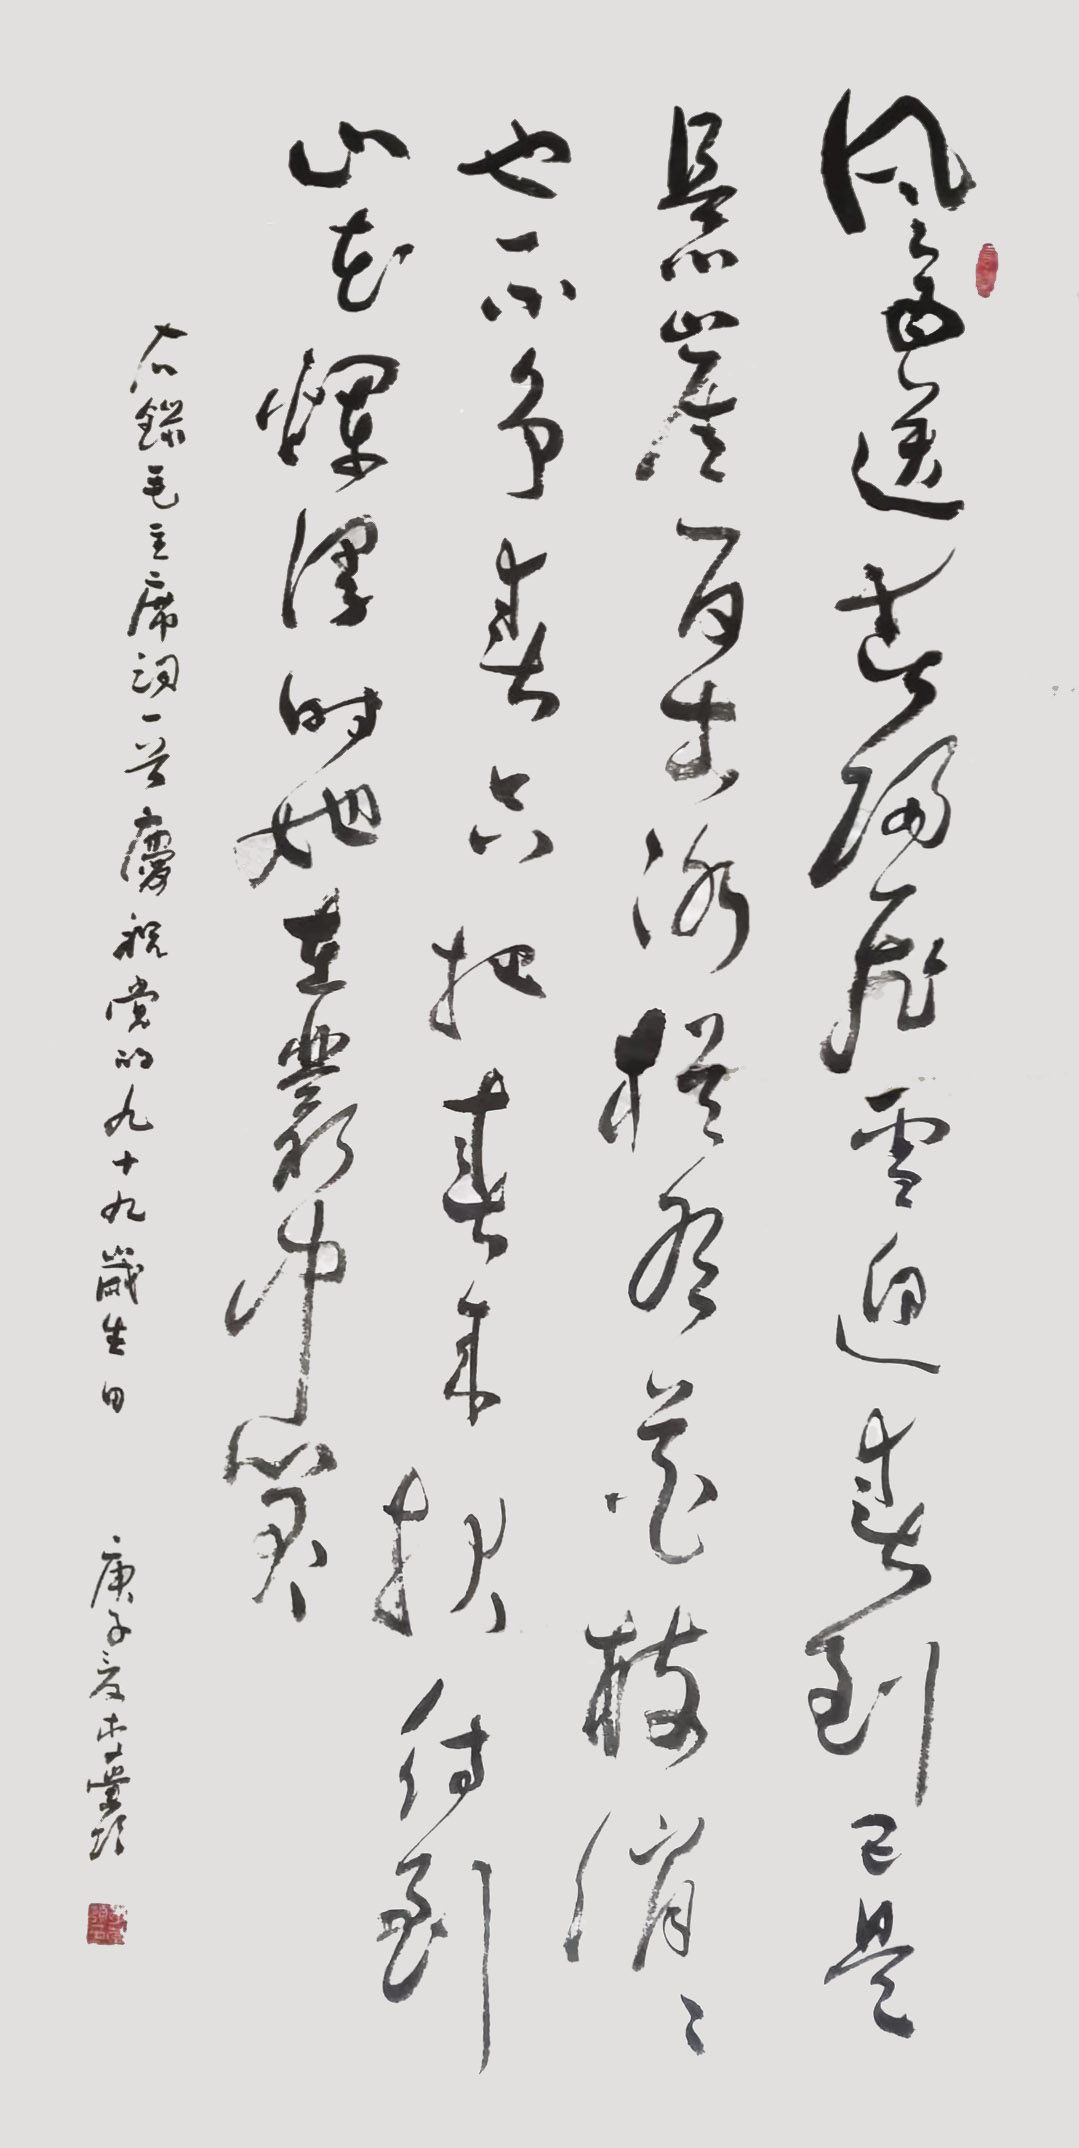 风雨送春歸飛雪迎春到已是
悬崖百丈冰猶有花枝俏〻
也不争春只把春来报待到
山花爛漫时她在叢中笑
右錄毛主席词一首慶祝党的九十九歲生日 庚子夏